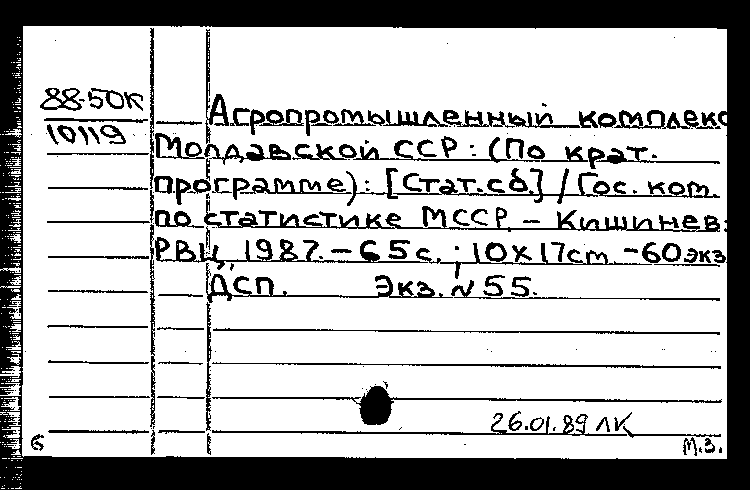 88-50К
10119
Агропромышленный комплекс
Молдавской ССР: (По крат.
программе): [Стат.сб.] / Гос. ком.
по статистике МССР. – Кишинев:
РВЦ, 1987. – 65 с. ; 10х17cm. – 60 экз
ДСП. Экз. № 55.
26.01.89 ЛК
6
М.З.